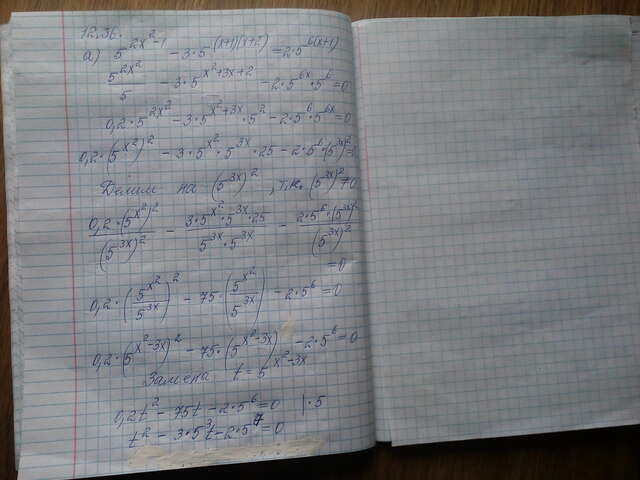 12.36.
а) 5^{2x²-1} - 3·5^{(x+1)(x+2)} = 2·5^{6(x+1)}
5^{2x²}/5 - 3·5^{x²+3x+2} - 2·5^{6x}·5^6 = 0
0,2·5^{2x²} - 3·5^{x²+3x}·5² - 2·5^6·5^{6x} = 0
0,2·(5^{x²})² - 3·5^{x²}·5^{3x}·25 - 2·5^6·(5^{3x})² = 0
Делим на (5^{3x})², т.к. (5^{3x})² ≠ 0
0,2·(5^{x²})²/(5^{3x})² - 3·5^{x²}·5^{3x}·25/5^{3x}·5^{3x} - 2·5^6·(5^{3x})²/(5^{3x})²
= 0
0,2·(5^{x²}/5^{3x})² - 75·(5^{x²}/5^{3x}) - 2·5^6 = 0
0,2·(5^{x²-3x})² - 75·(5^{x²-3x}) - 2·5^6 = 0
Замена t = 5^{x²-3x}
0,2t² - 75t - 2·5^6 = 0 |·5
t² - 3·5³t - 2·5^7 = 0